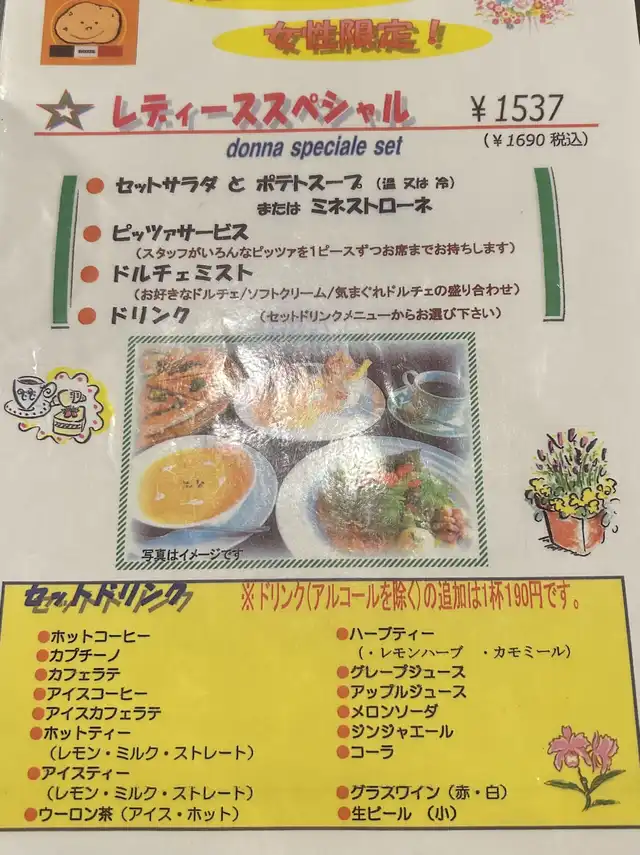 女性限定!
レディーススペシャル ¥1537
(¥1690 税込)
donna speciale set
● セットサラダ と ポテトスープ (温 又は 冷)
または ミネストローネ
● ピッツァサービス
(スタッフがいろんなピッツァを1ピースずつお席までお持ちします)
● ドルチェミスト
(お好きなドルチェ/ソフトクリーム/気まぐれドルチェの盛り合わせ)
● ドリンク (セットドリンクメニューからお選び下さい)
写真はイメージです
セットドリンク ※ドリンク(アルコールを除く)の追加は1杯190円です。
●ホットコーヒー
●カプチーノ
●カフェラテ
●アイスコーヒー
●アイスカフェラテ
●ホットティー
(レモン・ミルク・ストレート)
●アイスティー
(レモン・ミルク・ストレート)
●ウーロン茶(アイス・ホット)
●ハーブティー
(・レモンハーブ ・カモミール)
●グレープジュース
●アップルジュース
●メロンソーダ
●ジンジャエール
●コーラ
●グラスワイン(赤・白)
●生ビール (小)